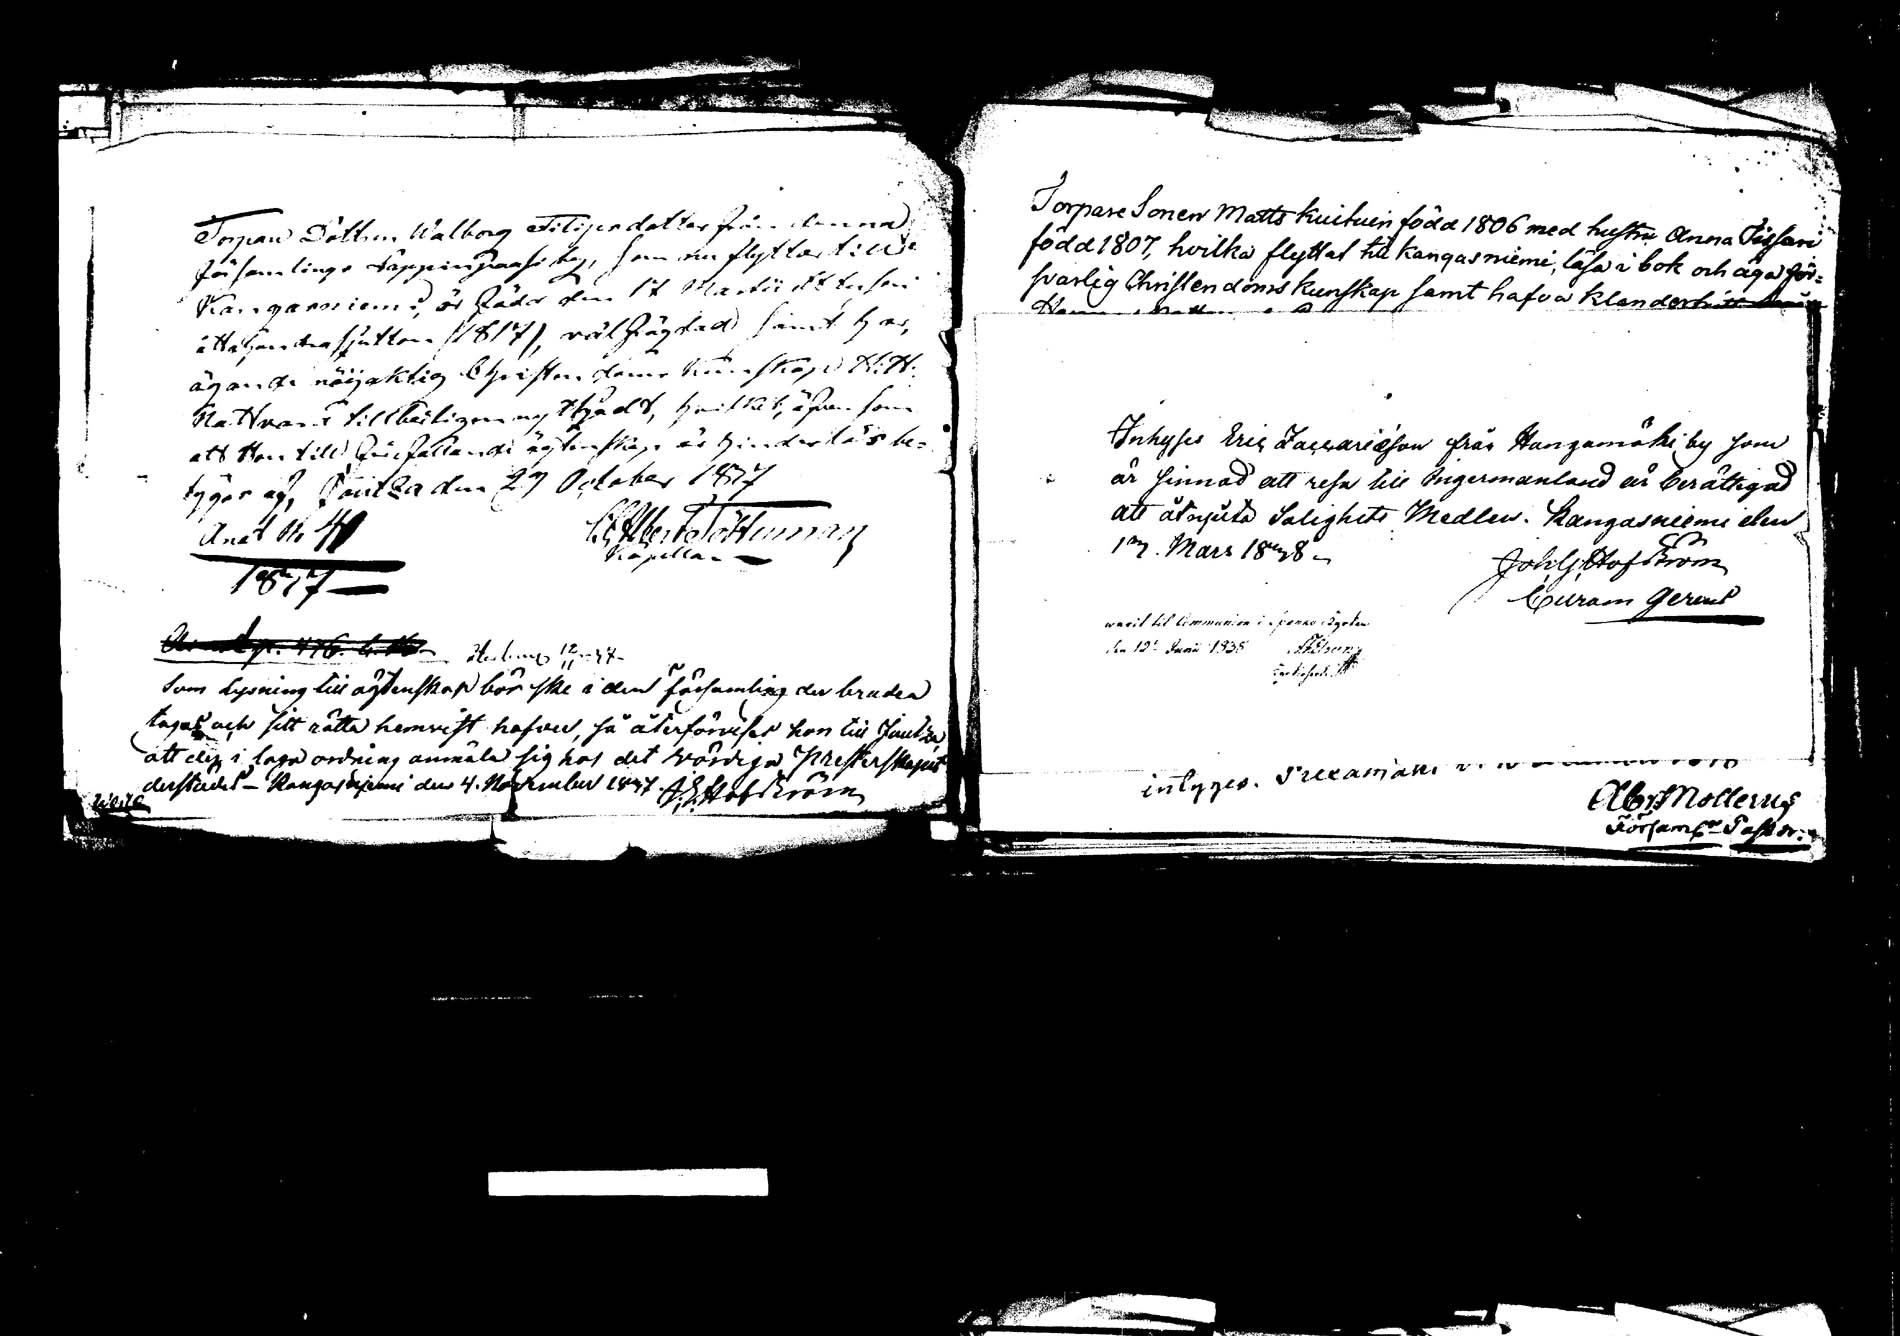 Torpare Dottren Walborg Filipsdotter från denna
församlings Läppinpaasi by, som nu flyttar till
Kangasniemi, är född den 17 Martii ett tusen
åttahundrasjutton (1817), välfrägdad samt har,
ägande nöijaktig Christendoms Kunskap H. H.
Nattvard tillbörligen nyttjadt, hvilket, äfvensom
att Hon till förefallande äktenskap är hinderlös be-
tygar af, Joutza den 29 October 1837
Anat N. 41
1837
Albert Töttennan
Kapellan
Som Lysning till ägtenskap bör ske i den församling der bruden
tages och sitt rätta hemvist hafver, så återförvises hon till Joutza
att der i laga ordning anmäla sig hos det wördiga Presterskapet
derstädes – Kangasniemi den 4. November 1837. J. G. Hofström
Torpare Sonen Matts Kuituin född 1806 med hustru Anna Tissari
född 1807, hvilka flyttat till Kangasniemi, läsa i bok och äga för-
svarlig Christendoms kunskap samt hafva
Inhyses Eric Zacariæson från Hongamäki by som
är sinnad att resa till Ingermanland är berättigad
att åtnjuta Salighets Medlen. Kangasniemi den
17. Mars 1838
Joh. G. Hofström
Curam gerens
warit til Communion i
den 12 Junii 1838
intygges.
Abr. Mollerus
Församl. Pastor